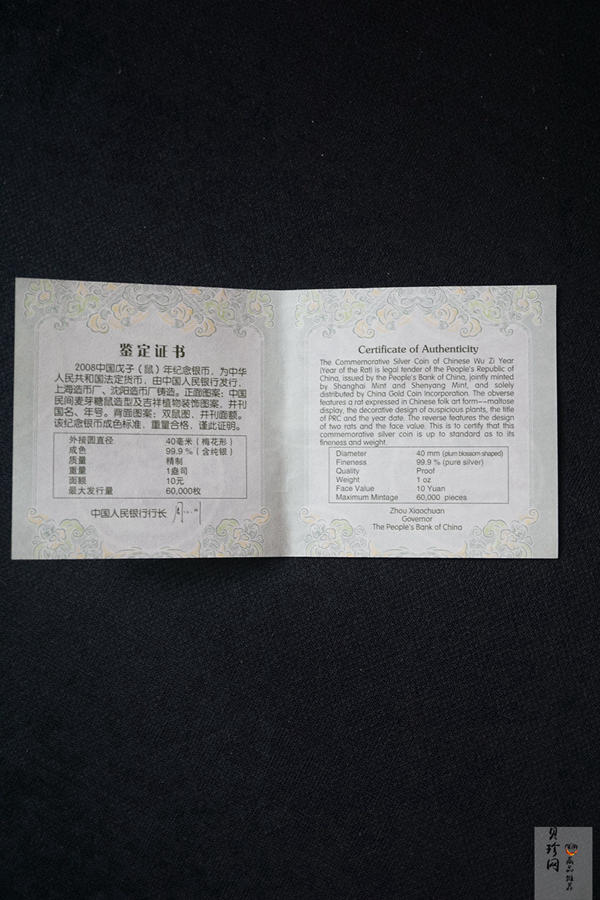 鉴定证书
2008中国戊子（鼠）年纪念银币，为中华
人民共和国法定货币，由中国人民银行发行，
上海造币厂、沈阳造币厂铸造。正面图案：中国
民间麦芽糖鼠造型及吉祥植物装饰图案，并刊
国名、年号。背面图案：双鼠图，并刊面额。
该纪念银币成色标准，重量合格，谨此证明。
外接圆直径 40毫米（梅花形）
成色 99.9％（含纯银）
质量 精制
重量 1盎司
面额 10元
最大发行量 60,000枚
中国人民银行行长
Certificate of Authenticity
The Commemorative Silver Coin of Chinese Wu Zi Year
(Year of the Rat) is legal tender of the People's Republic of
China, issued by the People's Bank of China, jointly minted
by Shanghai Mint and Shenyang Mint, and solely
distributed by China Gold Coin Incorporation. The obverse
features a rat expressed in Chinese folk art form––maltose
display, the decorative design of auspicious plants, the title
of PRC and the year date. The reverse features the design
of two rats and the face value. This is to certify that this
commemorative silver coin is up to standard as to its
fineness and weight.
Diameter 40 mm (plum blossom shaped)
Fineness 99.9 % (pure silver)
Quality Proof
Weight 1 oz
Face Value 10 Yuan
Maximum Mintage 60,000 pieces
Zhou Xiaochuan
Governor
The People's Bank of China
贝珍网
藏品推荐